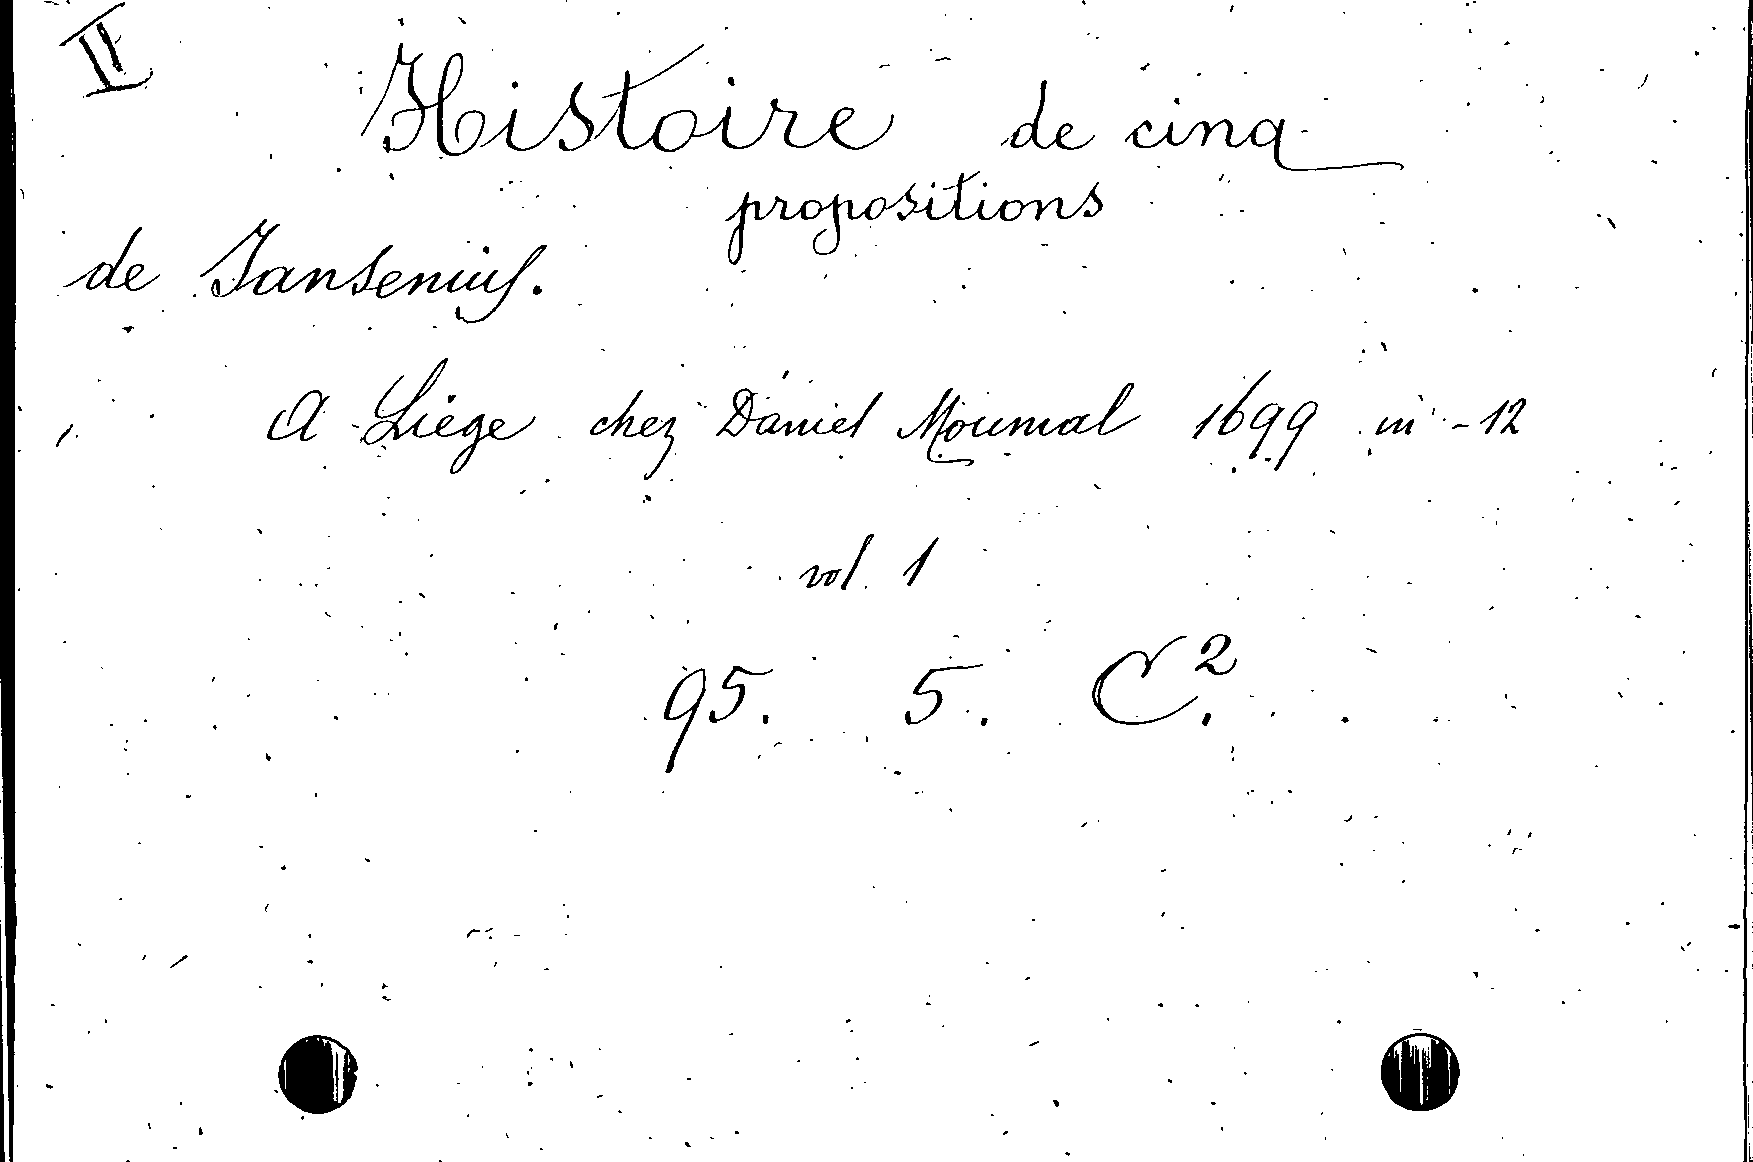 II
Histoire de cinq
propositions
de Jansenius.
A Liège chez Daniel Moumal 1699 in-12
vol. 1
95. 5. C².